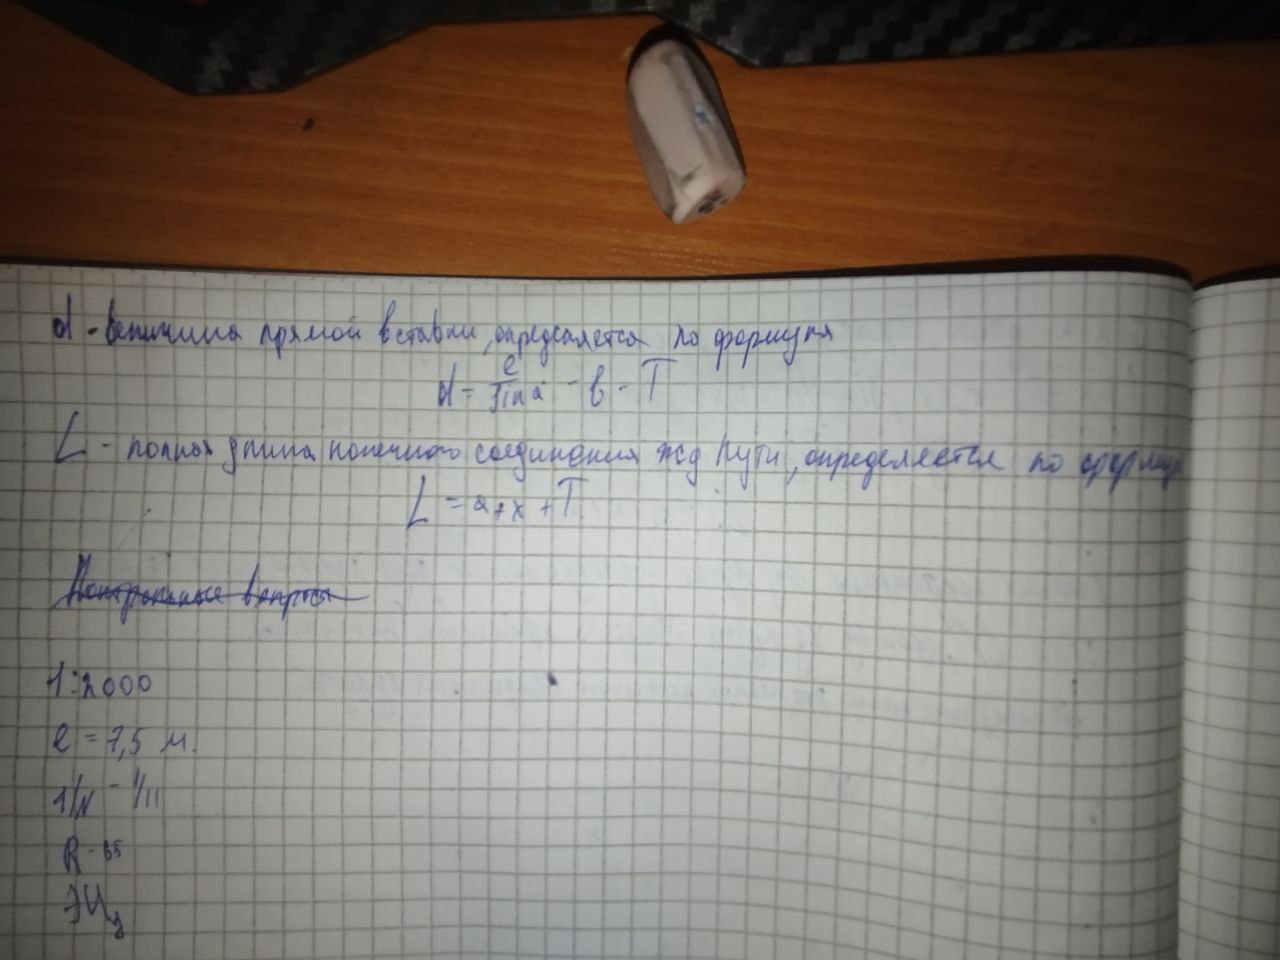 d - величина прямой вставки, определяется по формуля
d = e/sinα - в - T
L - полная длина конечного соединения жд пути, определяется по формул
L = a + x + T
Контрольные вопрсы
1:2000
e = 7,5 м.
1/N - 1/11
R - 65